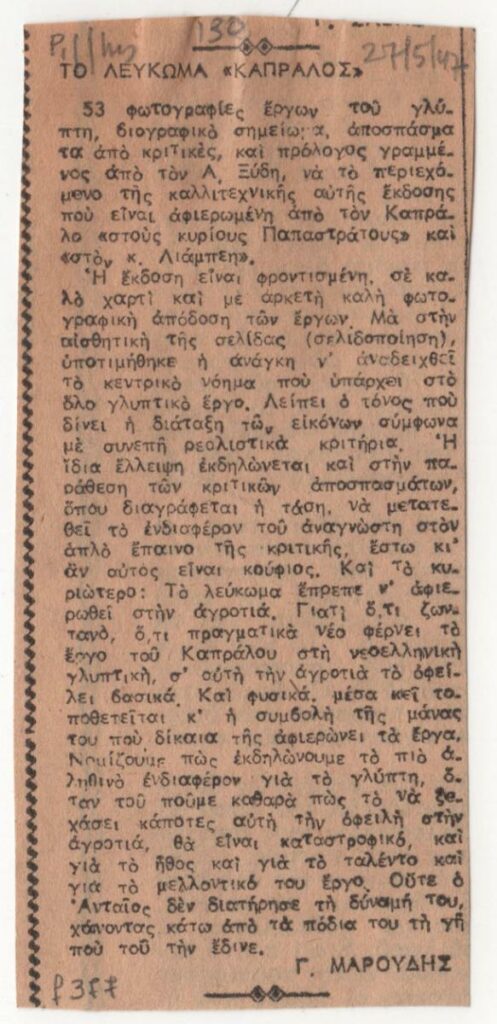 130
27/5/47
ΤΟ ΛΕΥΚΩΜΑ «ΚΑΠΡΑΛΟΣ»
53 φωτογραφίες ἔργων τοῦ γλύ-
πτη, βιογραφικὸ σημείωμα, ἀποσπάσμα
τα ἀπὸ κριτικὲς, καὶ πρόλογος γραμμέ-
νος ἀπὸ τὸν Α. Ξύδη, νὰ τὸ περιεχό-
μενο τῆς καλλιτεχνικῆς αὐτῆς ἔκδοσης
ποὺ εἶναι ἀφιερωμένη ἀπὸ τὸν Καπρά-
λο «στοὺς κυρίους Παπαστράτους» καὶ
«στὸν κ. Λιάμπεη».
Ἡ ἔκδοση εἶναι φροντισμένη, σὲ κα-
λὸ χαρτὶ καὶ μὲ ἀρκετὴ καλὴ φωτο-
γραφικὴ ἀπόδοση τῶν ἔργων. Μὰ στὴν
αἰσθητικὴ τῆς σελίδας (σελιδοποίηση),
ὑποτιμήθηκε ἡ ἀνάγκη ν' ἀναδειχθεῖ
τὸ κεντρικὸ νόημα ποὺ ὑπάρχει στὸ
ὅλο γλυπτικὸ ἔργο. Λείπει ὁ τόνος ποὺ
δίνει ἡ διάταξη τῶν εἰκόνων σύμφωνα
μὲ συνεπῆ ρεαλιστικὰ κριτήρια. Ἡ
ἴδια ἔλλειψη ἐκδηλώνεται καὶ στὴν πα-
ράθεση τῶν κριτικῶν ἀποσπασμάτων,
ὅπου διαγράφεται ἡ τάση, νὰ μετατε-
θεῖ τὸ ἐνδιαφέρον τοῦ ἀναγνώστη στὸν
ἁπλὸ ἔπαινο τῆς κριτικῆς, ἔστω κι'
ἂν αὐτὸς εἶναι κούφιος. Καὶ τὸ κυ-
ριώτερο: Τὸ λεύκωμα ἔπρεπε ν' ἀφιε-
ρωθεῖ στὴν ἀγροτιά. Γιατὶ ὅ,τι ζων-
τανὸ, ὅ,τι πραγματικὰ νέο φέρνει τὸ
ἔργο τοῦ Καπράλου στὴ νεοελληνικὴ
γλυπτικὴ, σ' αὐτὴ τὴν ἀγροτιὰ τὸ ὀφεί-
λει βασικά. Καὶ φυσικὰ, μέσα κεῖ το-
ποθετεῖται κ' ἡ συμβολὴ τῆς μάνας
του ποὺ δίκαια τῆς ἀφιερώνει τὰ ἔργα.
Νομίζουμε πὼς ἐκδηλώνουμε τὸ πιὸ ἀ-
ληθινὸ ἐνδιαφέρον γιὰ τὸ γλύπτη, ὅ-
ταν τοῦ ποῦμε καθαρὰ πὼς τὸ νὰ ξε-
χάσει κάποτες αὐτὴ τὴν ὀφειλὴ στὴν
ἀγροτιά, θὰ εἶναι καταστροφικό, καὶ
γιὰ τὸ ἦθος καὶ γιὰ τὸ ταλέντο καὶ
γιὰ τὸ μελλοντικό του ἔργο. Οὔτε ὁ
Ἀνταῖος δὲν διατήρησε τὴ δύναμή του,
χάνοντας κάτω ἀπὸ τὰ πόδια του τὴ γῆ
ποὺ τοῦ τὴν ἔδινε.
Γ. ΜΑΡΟΥΔΗΣ
f 377